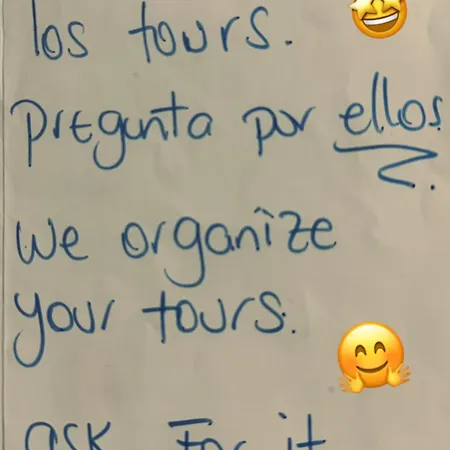 los tours.
Pregunta por ellos.
We organize
your tours.
ask For it